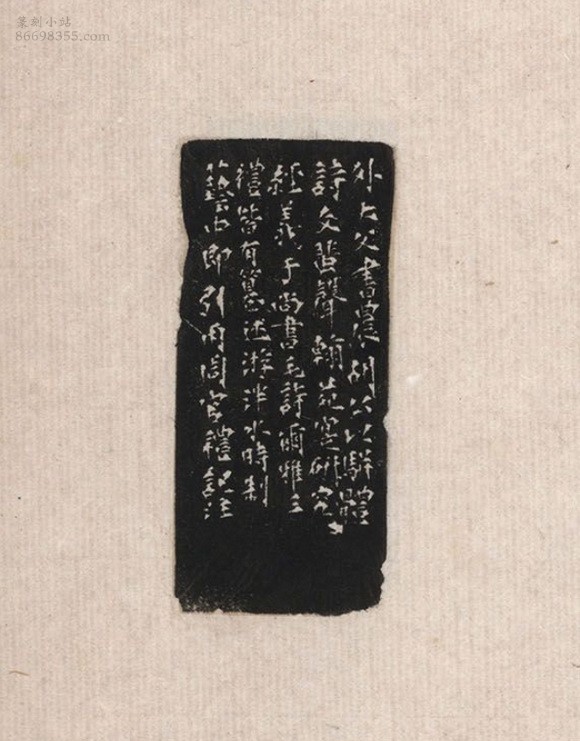 篆刻小站
86698355.com
外大父書農胡公以駢體
詩文蜚聲翰苑寔研究
經義于尚書毛詩爾雅三
禮皆有箋述游泮水時制
藝中即引用周官禮記注